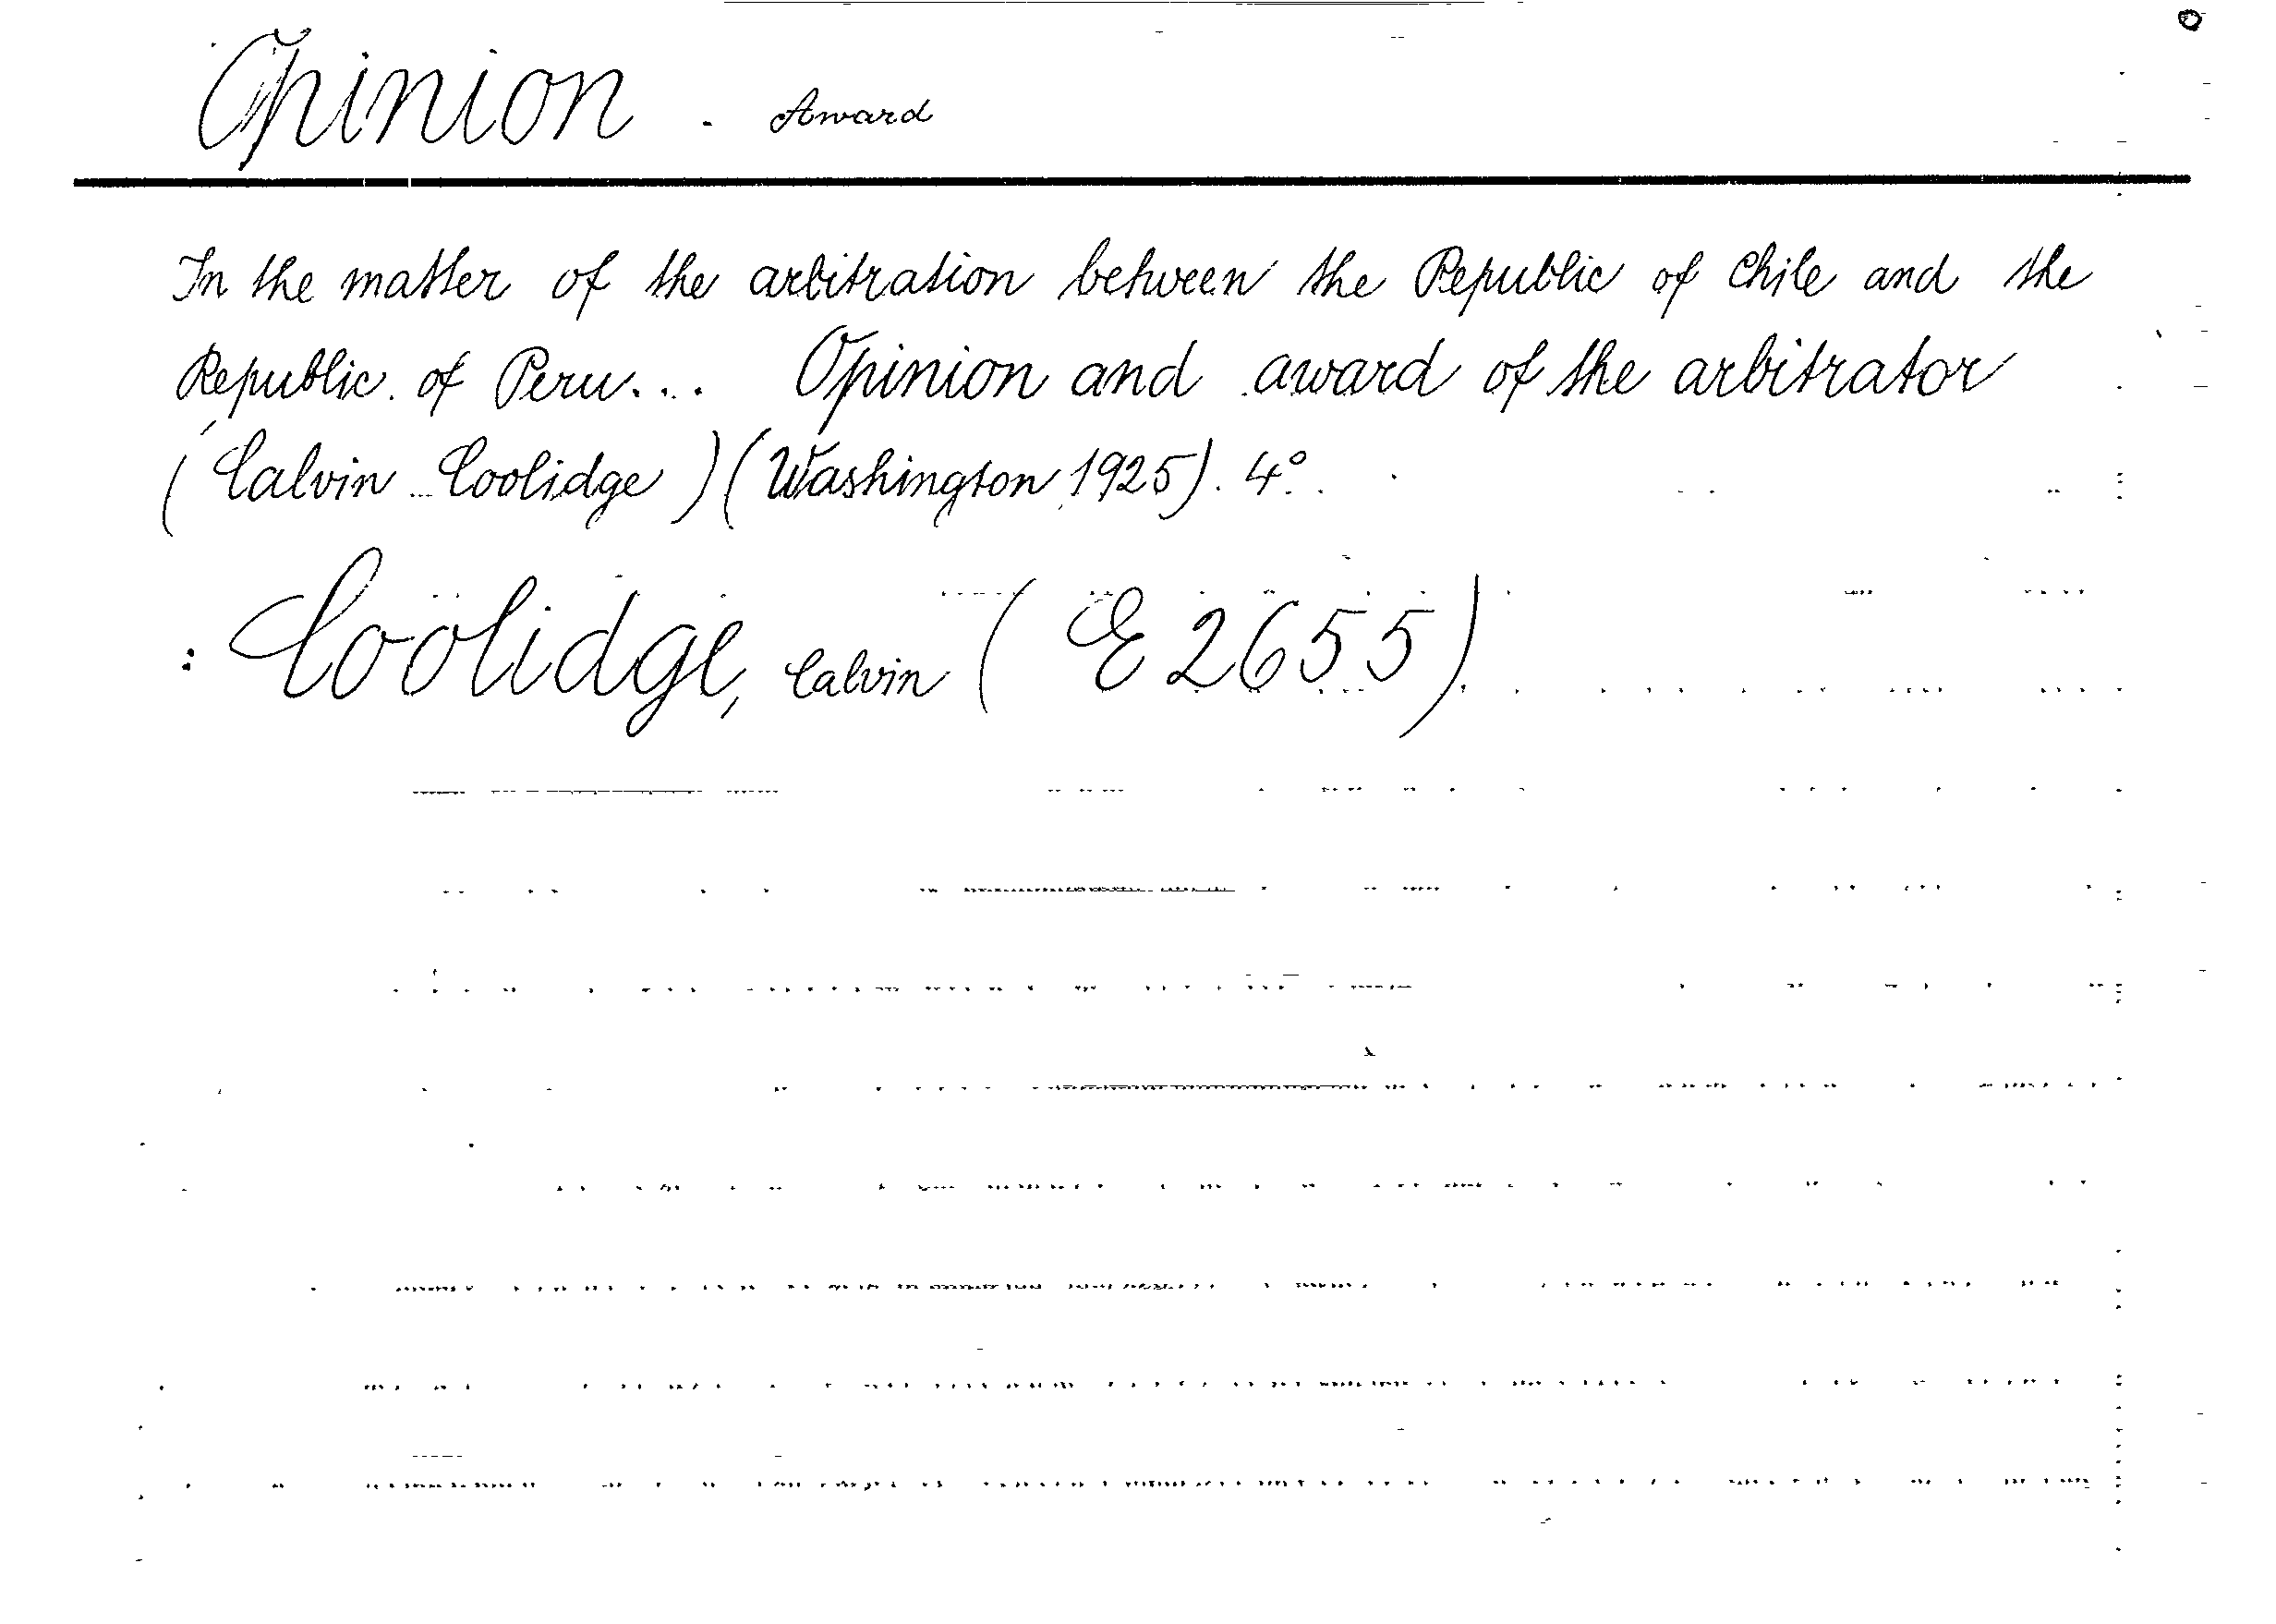 Opinion . Award
In the matter of the arbitration between the Republic of Chile and the
Republic of Peru... Opinion and award of the arbitrator
(Calvin Coolidge) (Washington, 1925). 4°.
: Coolidge, Calvin (E 2655).